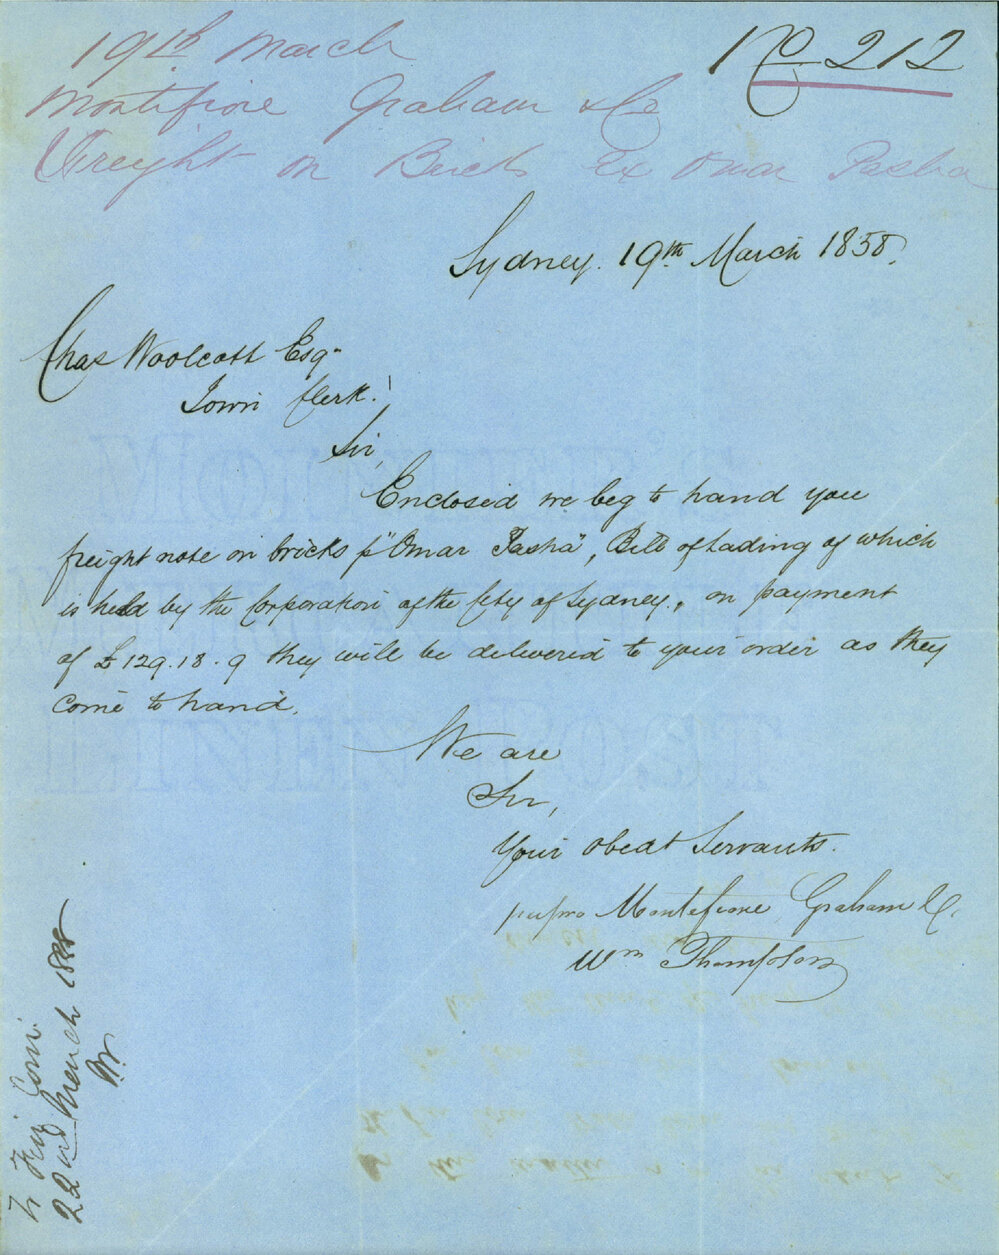 No 212
19th March
Montifiore Graham & Co
Freyht on Bricks Ex Omar Pasha
Sydney. 19th March 1858.
Chas Woolcott Esqr
Town Clerk.
Sir,
Enclosed we beg to hand you
freight note on bricks p "Omar Pasha", Bill of Lading of which
is held by the Corporation of the City of Sydney, on payment
of £129.18.9 they will be delivered to your order as they
come to hand.
We are
Sir,
Your obedt Servants.
perpro Montefiore Graham & Co.
Wm Thompson
To Fin Com
22nd March 1858
W
MOUNTER'S
LINEN POST